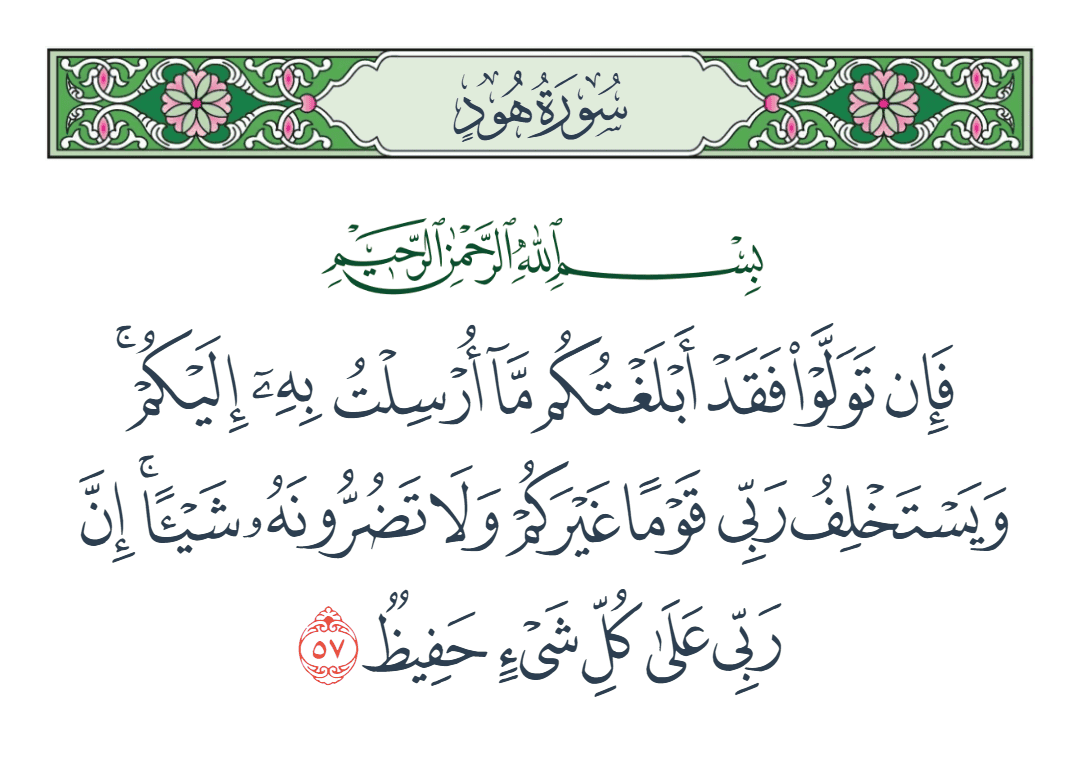 سُورَةُ هُودٍ
بِسْمِ ٱللَّهِ ٱلرَّحْمَٰنِ ٱلرَّحِيمِ
فَإِن تَوَلَّوْا۟ فَقَدْ أَبْلَغْتُكُم مَّآ أُرْسِلْتُ بِهِۦٓ إِلَيْكُمْ ۚ
وَيَسْتَخْلِفُ رَبِّى قَوْمًا غَيْرَكُمْ وَلَا تَضُرُّونَهُۥ شَيْـًٔا ۚ إِنَّ
رَبِّى عَلَىٰ كُلِّ شَىْءٍ حَفِيظٌ ٥٧